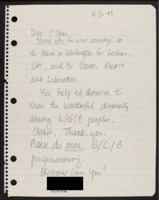 Dear C-Span,
Thank you for your coverage of
the March on Washington for Lesbian,
Gay, and Bi Equal Rights
and Liberation.
You help all America to
know the wonderful diversity
among L/G/B peoples.
Again, Thank you.
Please do more G/L/B
programming.